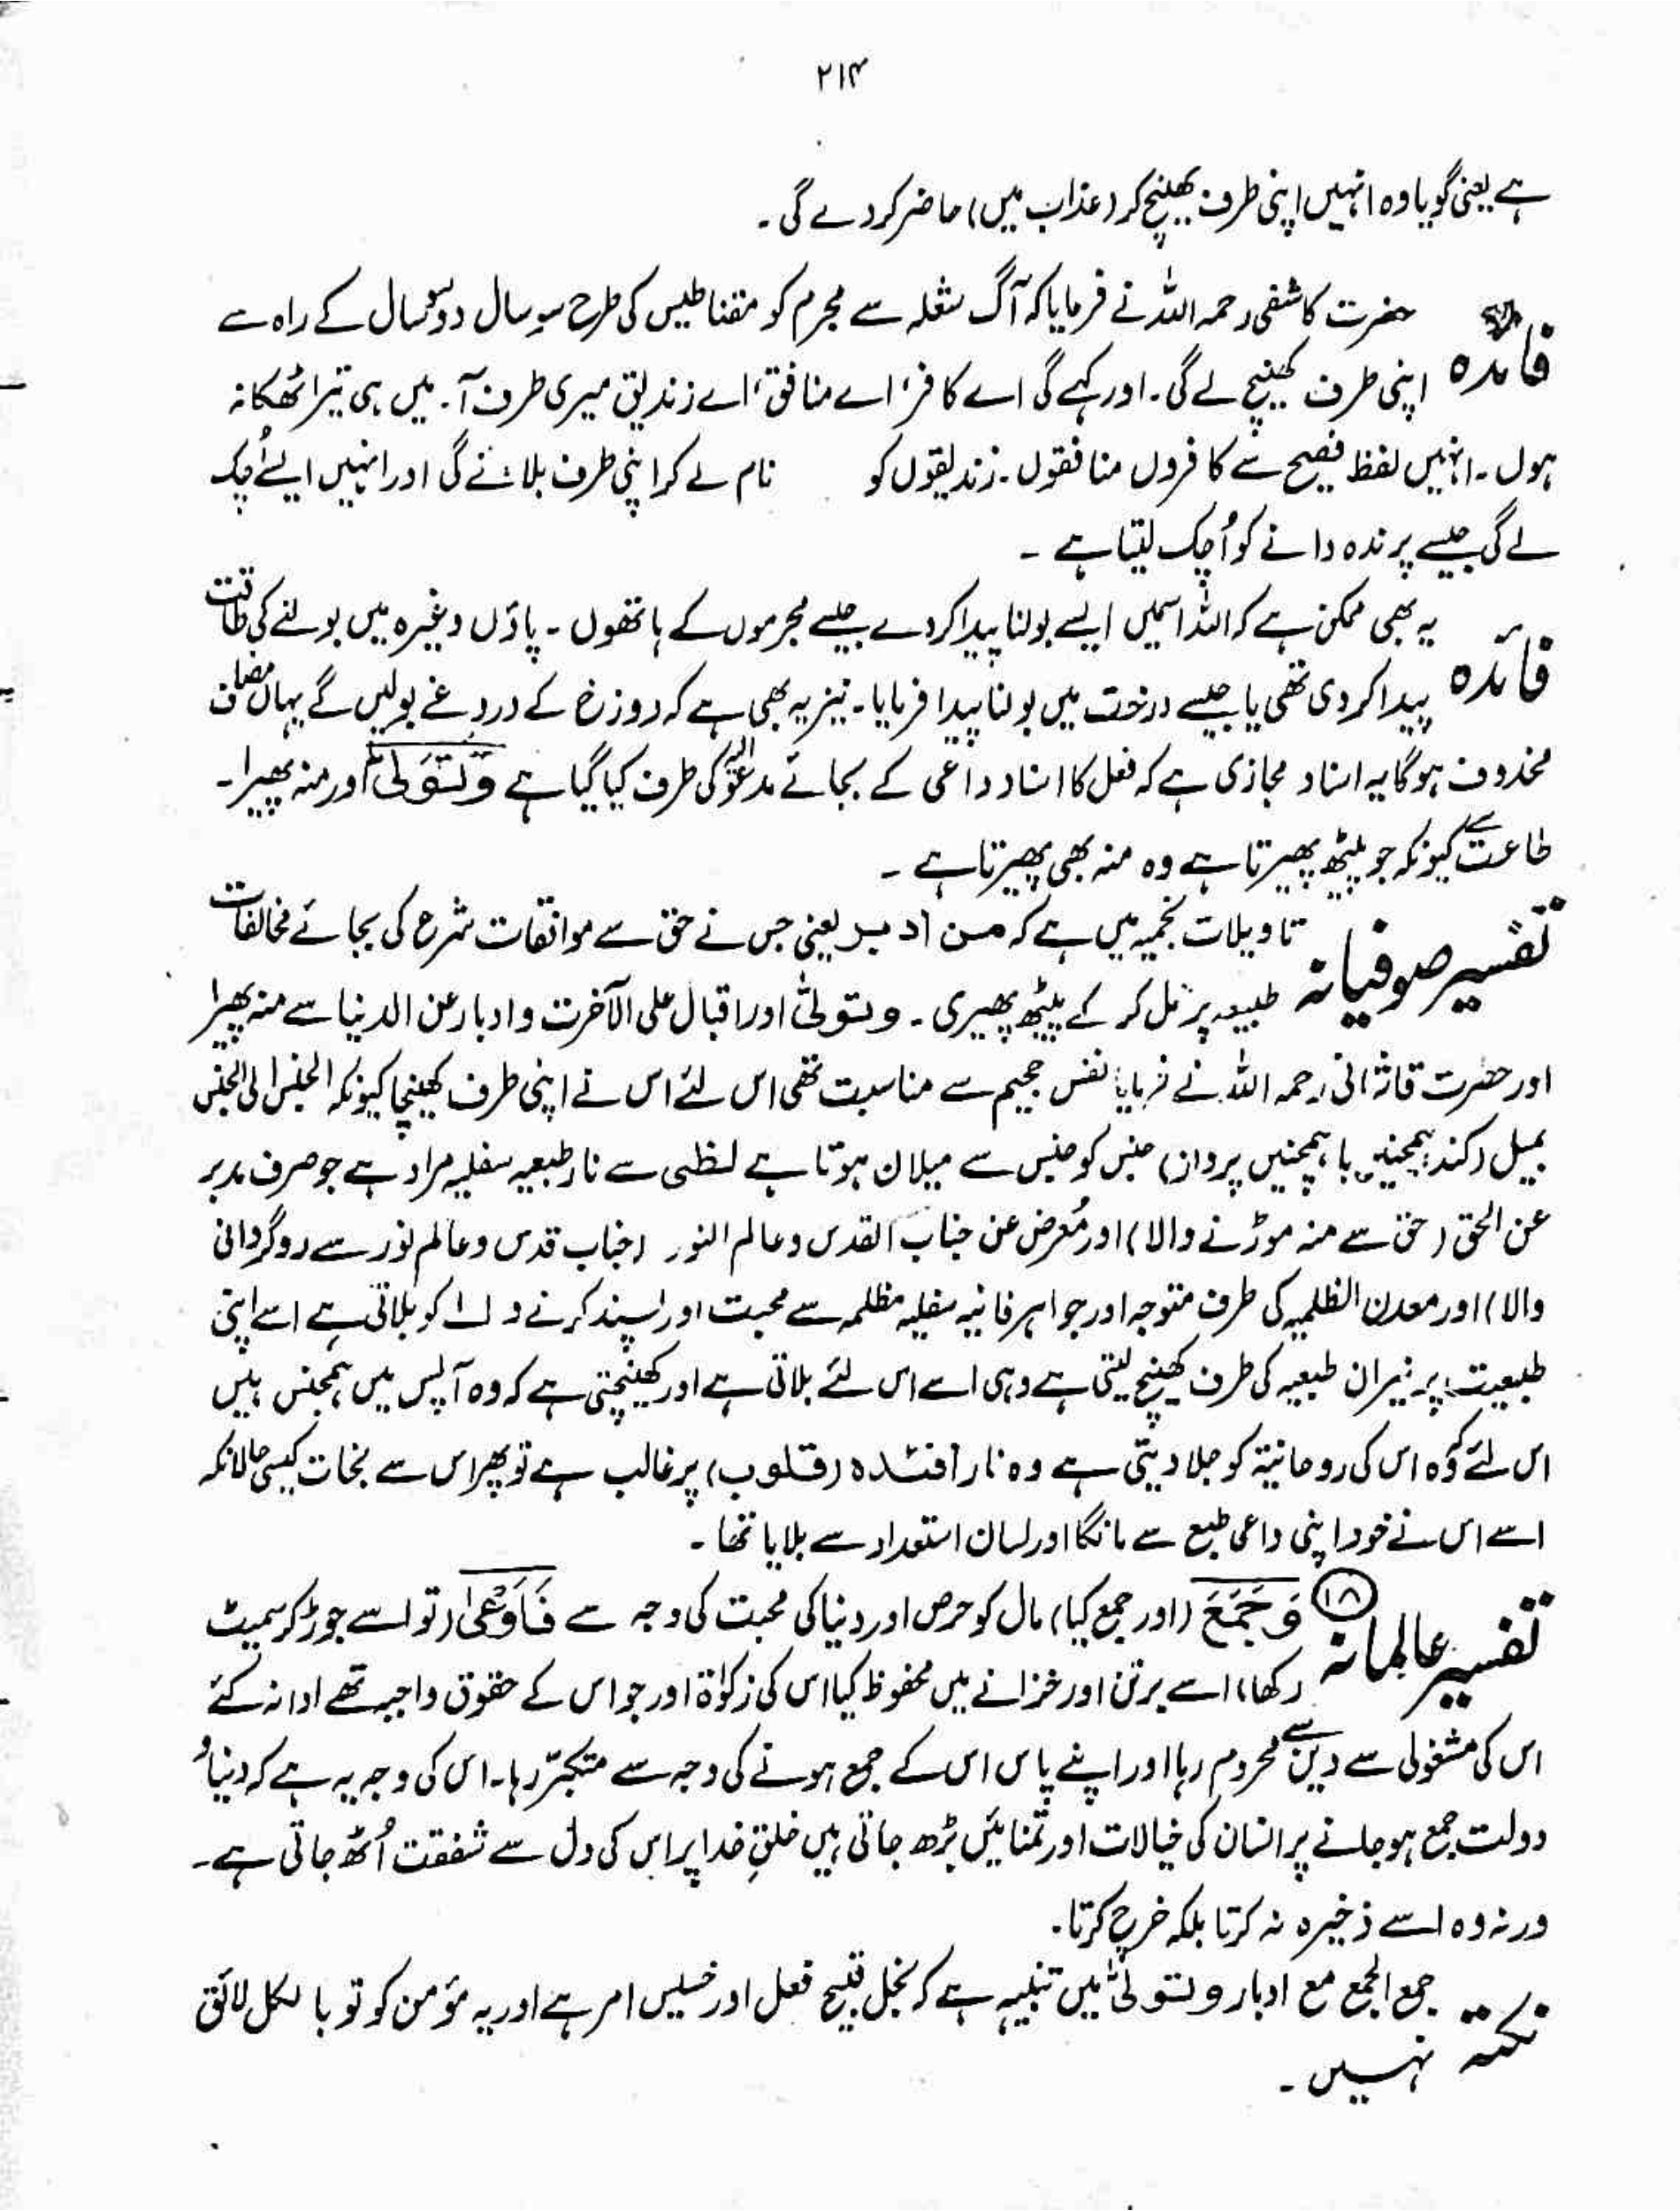 ۲۱۴
ہے یعنی گویا وہ انہیں اپنی طرف کھینچ کر (عذاب میں) حاضر کردے گی ۔
فائدہ حضرت کاشفی رحمہ اللہ نے فرمایا کہ آگ شعلہ سے مجرم کو مقناطیس کی طرح سو سال دو سو سال کے راہ سے
اپنی طرف کھینچ لے گی ۔ اور کہے گی اے کافر، اے منافق، اے زندیق میری طرف آ ۔ میں ہی تیرا ٹھکانہ
ہوں ۔ انہیں لفظ فصیح سے کافروں منافقوں ۔ زندیقوں کو نام لے کر اپنی طرف بلائے گی اور انہیں ایسے اُچک
لے گی جیسے پرندہ دانے کو اُچک لیتا ہے ۔
فائدہ یہ بھی ممکن ہے کہ اللہ اسمیں ایسے بولنا پیدا کردے جیسے مجرموں کے ہاتھوں ۔ پاؤں وغیرہ میں بولنے کی طاقت
پیدا کردی تھی یا جیسے درخت میں بولنا پیدا فرمایا ۔ نیز یہ بھی ہے کہ دوزخ کے دردغے بولیں گے یہاں مضاف
محذوف ہوگا یہ اسناد مجازی ہے کہ فعل کا اسناد داعی کے بجائے مدعو الیہ کی طرف کیا گیا ہے وَتَوَلّٰی اور منہ پھیرا ۔
طاعت سے کیونکہ جو پیٹھ پھیرتا ہے وہ منہ بھی پھیرتا ہے ۔
تفسیر صوفیانہ تاویلات نجمیہ میں ہے کہ من ادبر یعنی جس نے حق سے موافقات شرع کی بجائے مخالفات
طبیعہ پر عمل کر کے پیٹھ پھیری ۔ وتولیٰ اور اقبال علی الآخرت و ادبار عن الدنیا سے منہ پھیرا
اور حضرت قاشانی رحمہ اللہ نے فرمایا نفس جحیم سے مناسبت تھی اس لئے اس نے اپنی طرف کھینچا کیونکہ الجنس الی الجنس
یمیل (کند ہمجنس باہمجنس پرواز) جنس کو جنس سے میلان ہوتا ہے لظٰی سے نار طبعیہ سفلیہ مراد ہے جو صرف مدبر
عن الحق (حق سے منہ موڑنے والا) اور مُعرض عن جناب القدس وعالم النور (جناب قدس وعالم نور سے روگردانی
والا) اور معدن الظلمیہ کی طرف متوجہ اور جواہر فانیہ سفلیہ مظلمہ سے محبت اور پسند کرنے والے کو بلاتی ہے اسے اپنی
طبیعت پر نیران طبعیہ کی طرف کھینچ لیتی ہے وہی اسے اس لئے بلاتی ہے اور کھینچتی ہے کہ وہ آپس میں ہمجنس ہیں
اس لئے کہ وہ اس کی روحانیۃ کو جلا دیتی ہے وہ نار افئدہ (قلوب) پر غالب ہے تو پھر اس سے نجات کیسی حالانکہ
اسے اس نے خود اپنی داعی طبع سے مانگا اور لسان استعداد سے بلایا تھا ۔
تفسیر عالمانہ ۱۸ وَجَمَعَ (اور جمع کیا) مال کو حرص اور دنیا کی محبت کی وجہ سے فَاَوْعٰی (تو اسے جوڑ کر سمیٹ
رکھا) اسے برتن اور خزانے میں محفوظ کیا اس کی زکوٰۃ اور جو اس کے حقوق واجب تھے ادا نہ کئے
اس کی مشغولی سے دین سے محروم رہا اور اپنے پاس اس کے جمع ہونے کی وجہ سے متکبّر رہا ۔ اس کی وجہ یہ ہے کہ دنیا و
دولت جمع ہوجانے پر انسان کی خیالات اور تمنائیں بڑھ جاتی ہیں خلقِ خدا پر اس کی دل سے شفقت اُٹھ جاتی ہے ۔
ورنہ وہ اسے ذخیرہ نہ کرتا بلکہ خرچ کرتا ۔
نکتہ جمع الجمع مع ادبار وتولیٰ میں تنبیہ ہے کہ بخل قبیح فعل اور خسیس امر ہے اور یہ مؤمن کو تو بالکل لائق
نہیں ۔